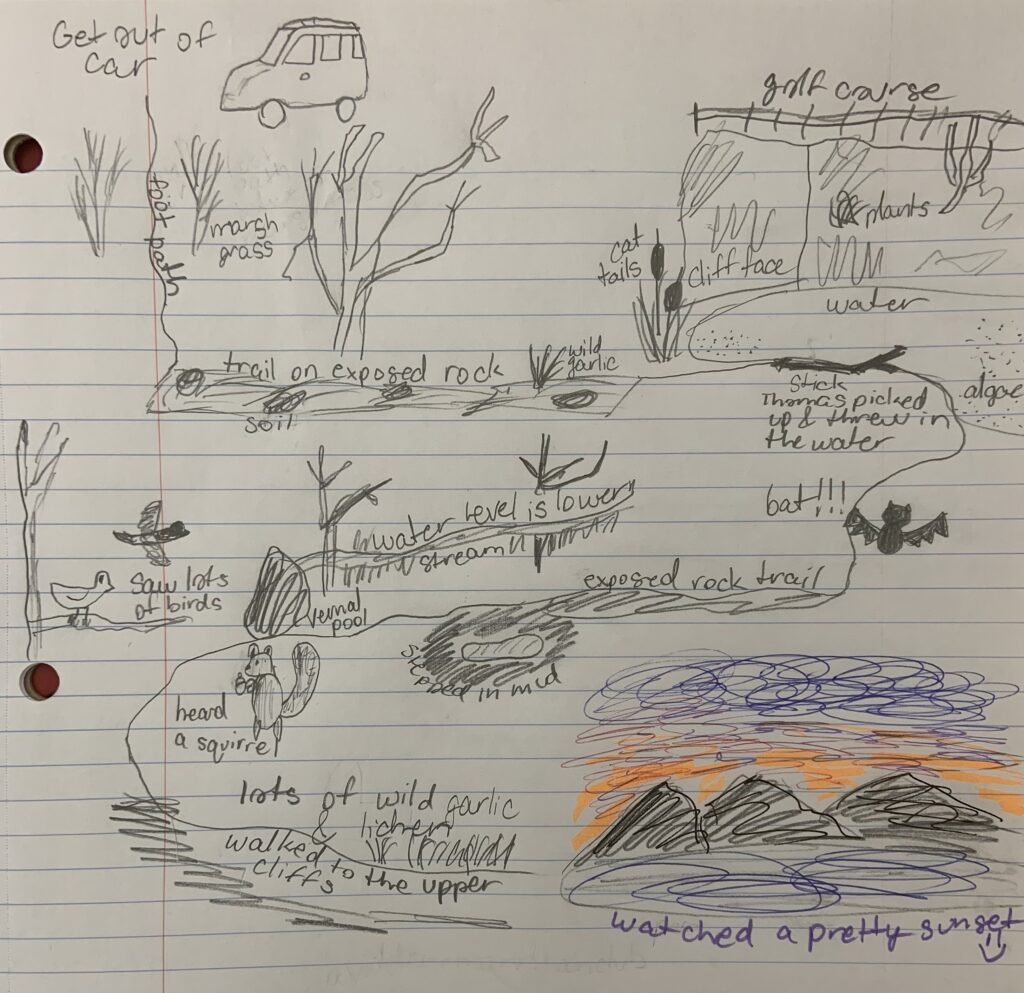 Get out of
car
golf course
foot path
marsh
grass
plants
cat
tails
cliff face
water
trail on exposed rock
wild
garlic
soil
stick
Thomas picked
up & threw in
the water
algae
bat!!!
water level is lower
stream
exposed rock trail
saw lots
of birds
vernal
pool
stepped in mud
heard
a squirrel
lots of wild garlic
& lichen
walked to the upper
cliffs
watched a pretty sunset